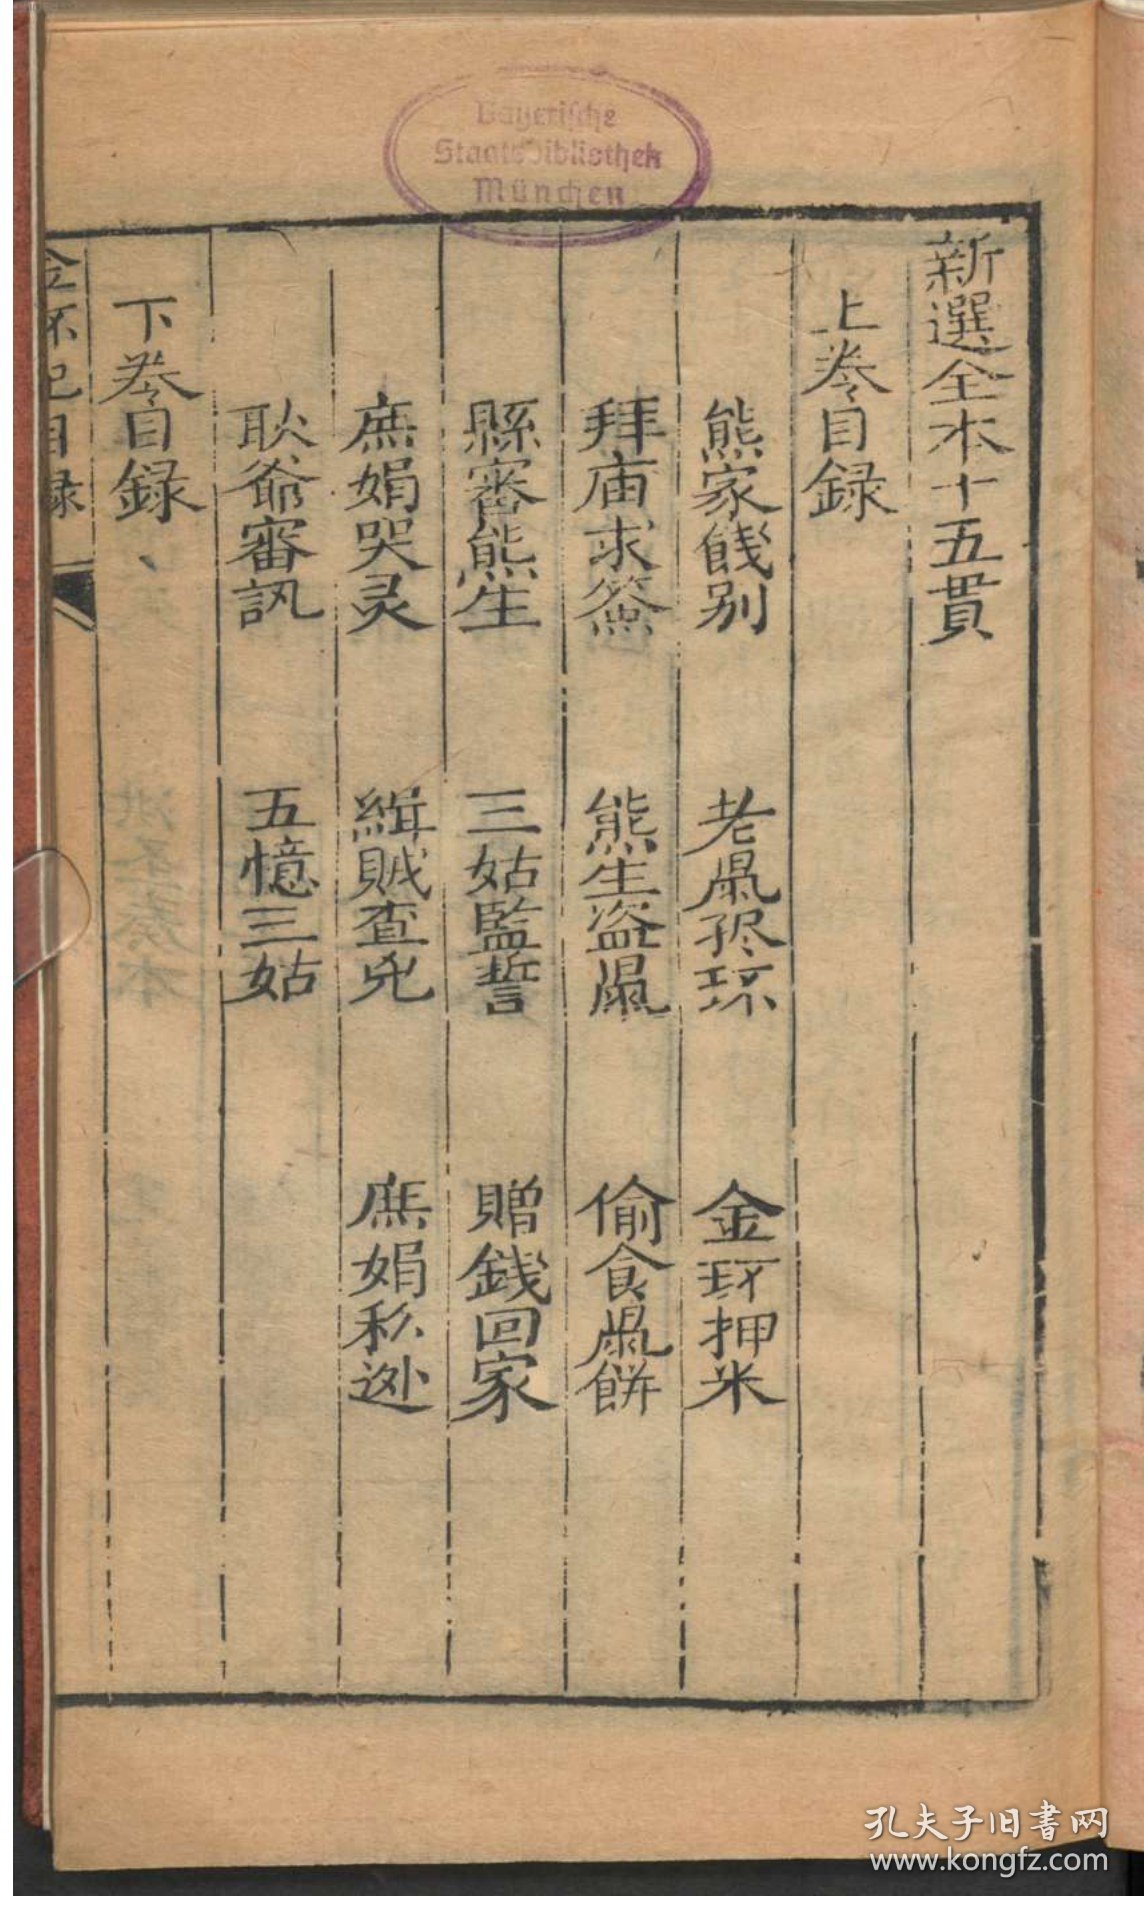 Bayerische
Staatsbibliothek
München
新選全本十五貫
上卷目録
熊家餞别 老鼠孖环 金环押米
拜庙求簽 熊生盗鼠 偷食鼠餅
縣審熊生 三姑監誓 贈錢回家
庶娟哭灵 緝賊查兇 庶娟私逊
耿爺審訊 五憶三姑
下卷目録
金环記目録
孔夫子旧书网
www.kongfz.com